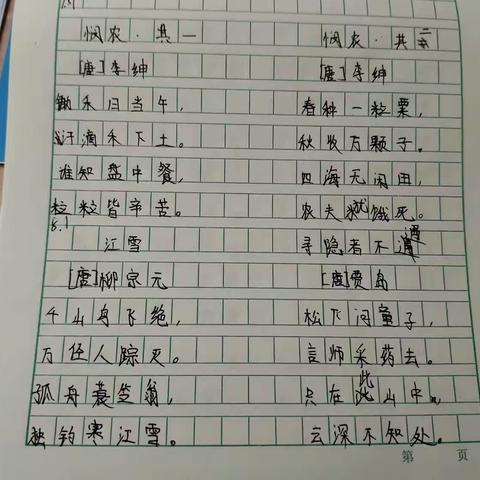 悯农·共一
[唐]李绅
锄禾日当午,
汗滴禾下土。
谁知盘中餐,
粒粒皆辛苦。
8.1
江雪
[唐]柳宗元
千山鸟飞绝,
万径人踪灭。
孤舟蓑笠翁,
独钓寒江雪。
悯农·共二
[唐]李绅
春种一粒粟,
秋收万颗子。
四海无闲田,
农夫就饿死。
寻隐者不遇
[唐]贾岛
松下问童子,
言师采药去。
只在此山中,
云深不知处。
第 页